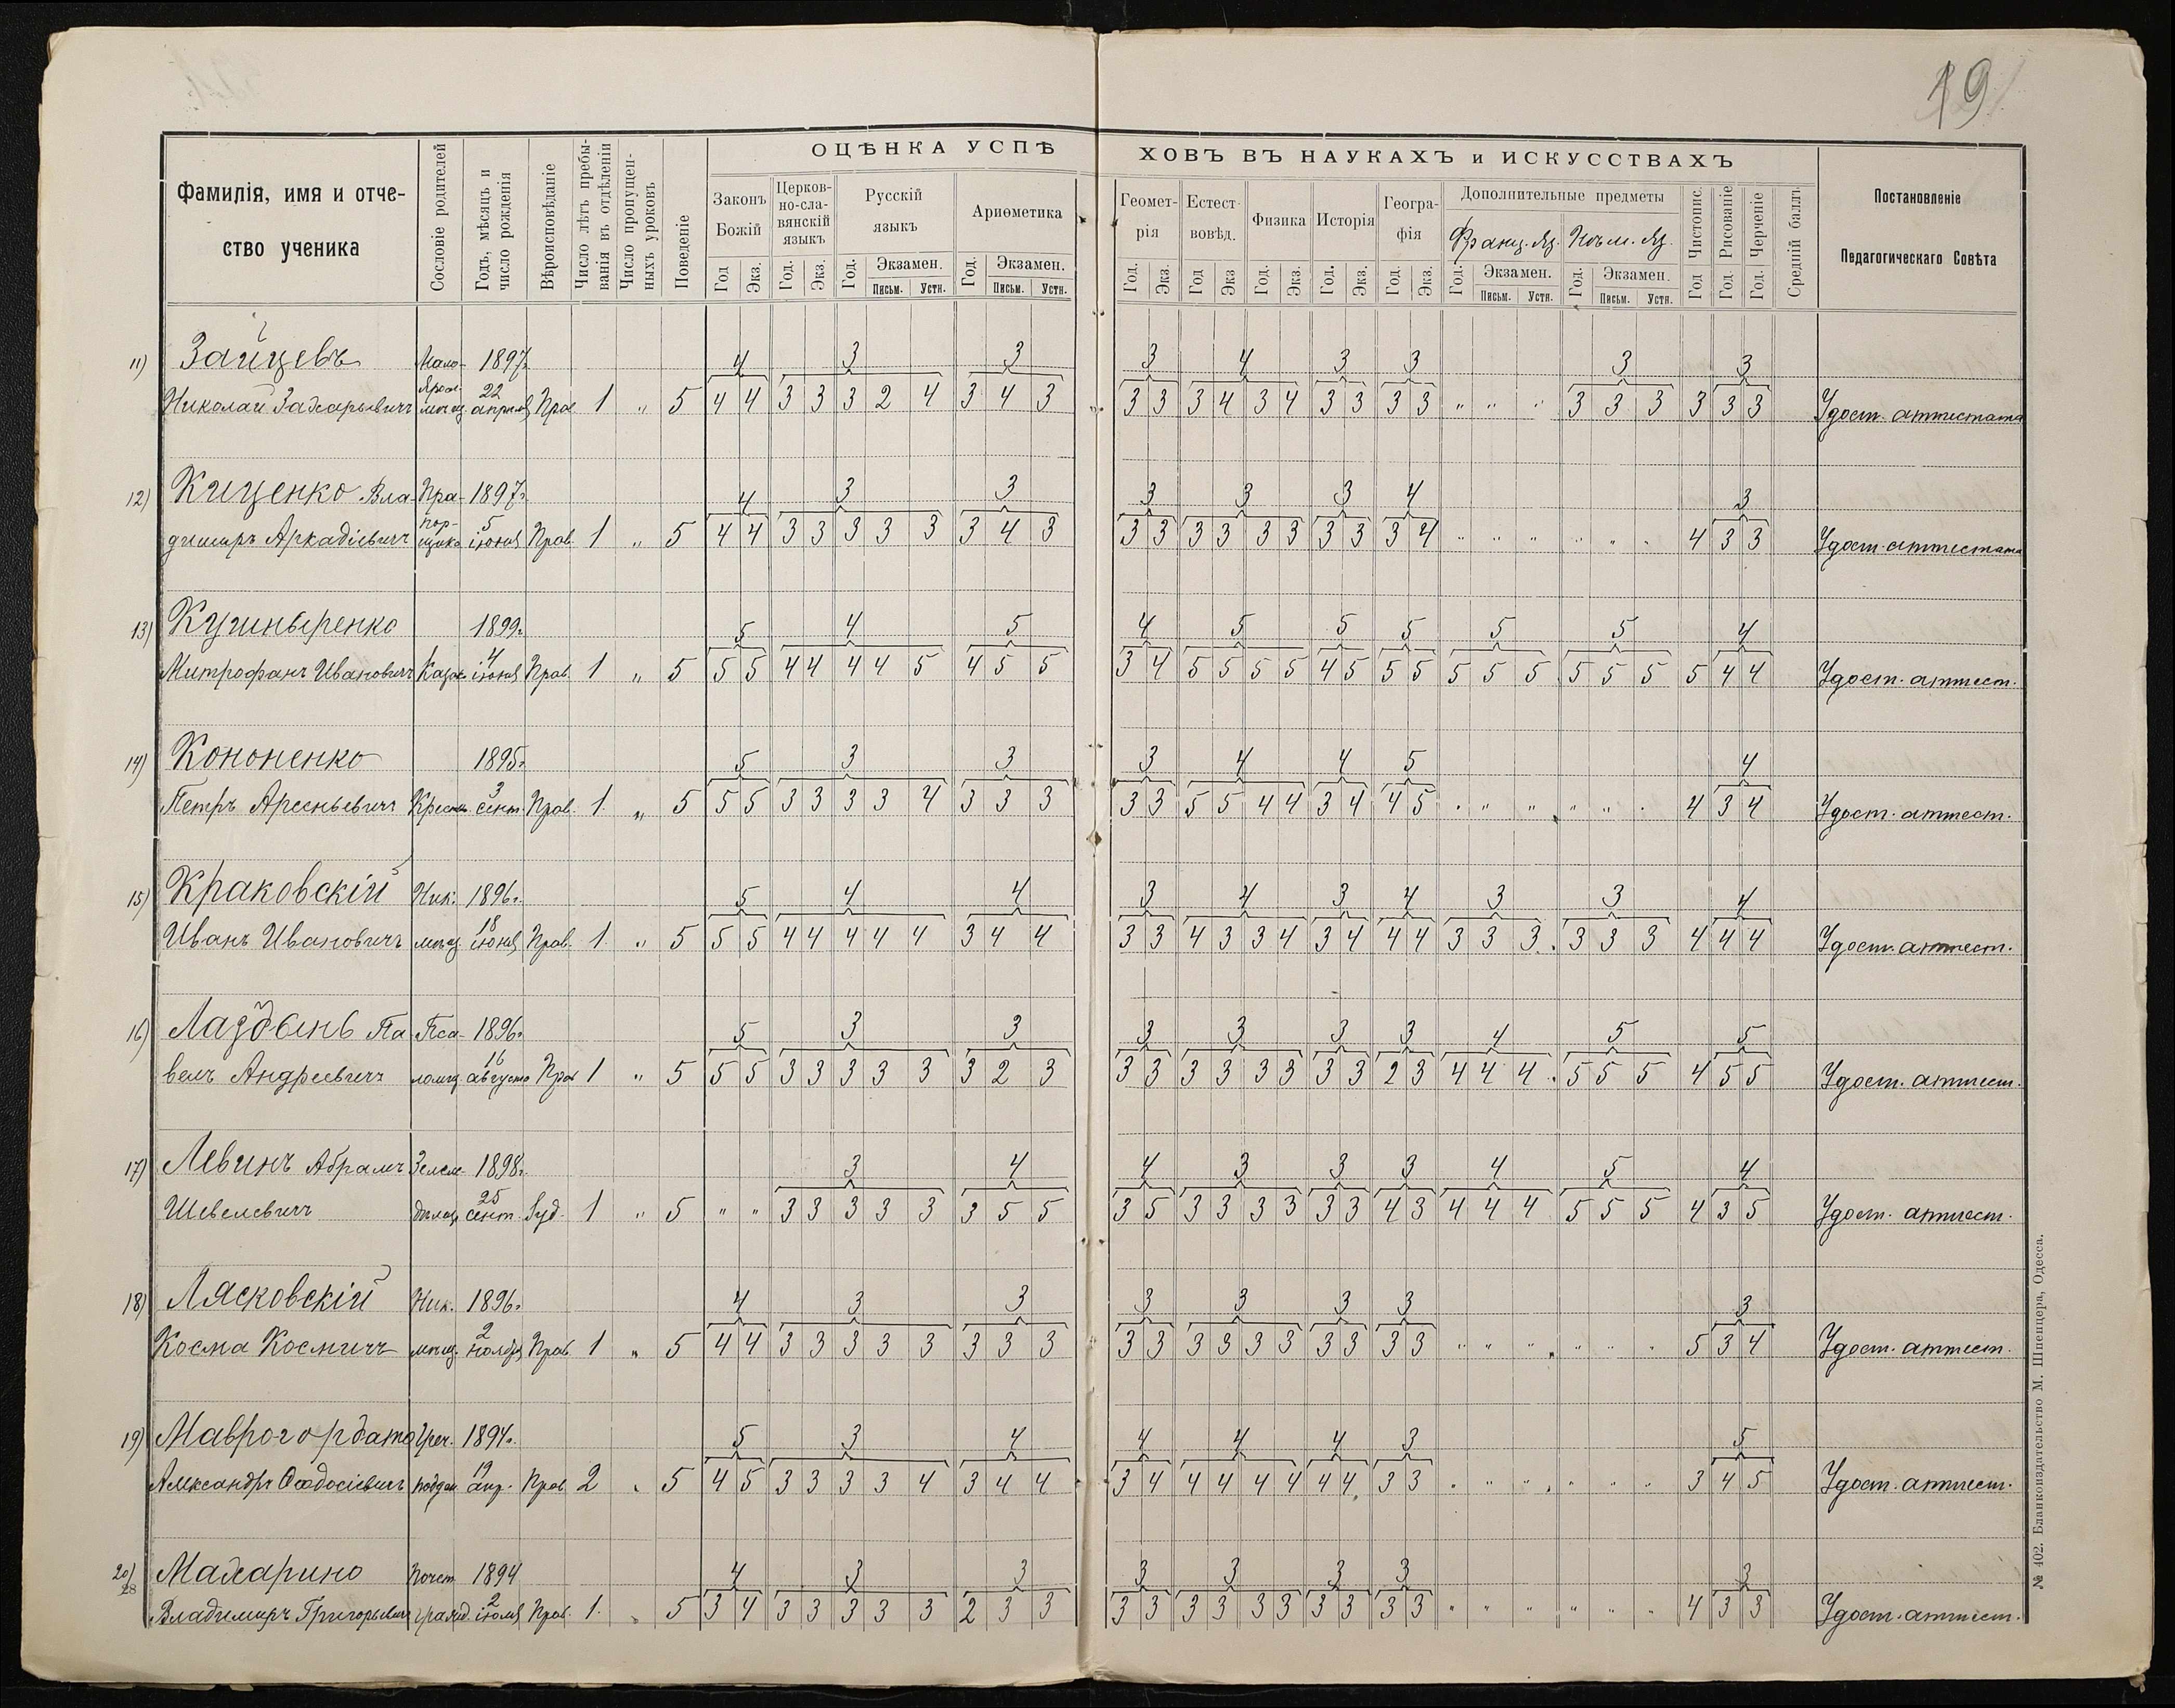 19
ОЦѢНКА УСПѢХОВЪ ВЪ НАУКАХЪ и ИСКУССТВАХЪ
Фамилія, имя и отчество ученика
Сословіе родителей
Годъ, мѣсяцъ и число рожденія
Вѣроисповѣданіе
Число лѣтъ пребыванія въ отдѣленіи
Число пропущенныхъ уроковъ
Поведеніе
Законъ Божій
Церковно-славянскій языкъ
Русскій языкъ
Ариѳметика
Геометрія
Естествовѣд.
Физика
Исторія
Географія
Дополнительные предметы
Франц. Яз. Нѣм. Яз.
Чистопис.
Рисованіе
Черченіе
Средній баллъ
Постановленіе Педагогическаго Совѣта
Год Экз. Год. Экз. Год. Экзамен. Письм. Устн. Год. Экзамен. Письм. Устн.
Год. Экз. Год Экз Год. Экз. Год. Экз. Год. Экз. Год. Экзамен. Письм. Устн. Год. Экзамен. Письм. Устн. Год Год. Год.
11) Зайцевъ 1897г. 4 3 3 3 4 3 3 3 3
Николай Захарьевичъ 22 апрѣля Прав. 1 „ 5 4 4 3 3 3 2 4 3 4 3 3 3 3 4 3 4 3 3 3 3 „ „ „ 3 3 3 3 3 3 Удост. аттестата
12) Киценко Вла- Пра- 1897г. 4 3 3 3 3 3 4 3
димиръ Аркадіевичъ порщика 5 іюня Прав. 1 „ 5 4 4 3 3 3 3 3 3 4 3 3 3 3 3 3 3 3 3 3 4 „ „ „ „ „ „ 4 3 3 Удост. аттестата
13) 1899г. 5 4 5 4 5 5 5 5 5 4
Митрофанъ Ивановичъ Казак 4 іюня Прав. 1 „ 5 5 5 4 4 4 4 5 4 5 5 3 4 5 5 5 5 4 5 5 5 5 5 5 5 5 5 5 4 4 Удост. аттест.
14) Кононенко 1895г. 5 3 3 3 4 4 5 4
Петръ Арсеньевичъ Крестьян. 3 сент. Прав. 1. „ 5 5 5 3 3 3 3 4 3 3 3 3 3 5 5 4 4 3 4 4 5 „ „ „ „ „ „ 4 3 4 Удост. аттест.
15) Краковскій Ник. 1896г. 5 4 4 3 4 3 4 3 3 4
Иванъ Ивановичъ мѣщ. 18 іюня Прав. 1. „ 5 5 5 4 4 4 4 4 3 4 4 3 3 4 3 3 4 3 4 4 4 3 3 3 3 3 3 4 4 4 Удост. аттест.
16) Лаздынь Па- Пса- 1896г. 5 3 3 3 3 3 3 4 5 5
велъ Андреевичъ ломщ. 16 августа Прав 1 „ 5 5 5 3 3 3 3 3 3 2 3 3 3 3 3 3 3 3 3 2 3 4 4 4 5 5 5 4 5 5 Удост. аттест.
17) Левинъ Абрамъ Земле- 1898г. 3 4 4 3 3 3 4 5 4
Шевелевичъ дѣлец 25 сент. Іуд. 1 „ 5 „ „ 3 3 3 3 3 3 5 5 3 5 3 3 3 3 3 3 4 3 4 4 4 5 5 5 4 3 5 Удост. аттест.
18) Лясковскій Ник. 1896г. 4 3 3 3 3 3 3 3
Косма Космичъ мѣщ. 2 ноября Прав. 1 „ 5 4 4 3 3 3 3 3 3 3 3 3 3 3 3 3 3 3 3 3 3 „ „ „ „ „ „ 5 3 4 Удост. аттест.
19) Маврогордато Греч. 1894г. 5 3 4 4 4 4 3 5
Александръ Ѳеодосіевичъ поддан. 19 апр. Прав. 2 „ 5 4 5 3 3 3 3 4 3 4 4 3 4 4 4 4 4 4 4 3 3 „ „ „ „ „ „ 3 4 5 Удост. аттест.
20) Махарино Почет. 1894 4 3 3 3 3 3 3 3
28
Владимиръ Григорьевичъ гражд. 2 іюля Прав. 1. „ 5 3 4 3 3 3 3 3 2 3 3 3 3 3 3 3 3 3 3 3 3 „ „ „ „ „ „ 4 3 3 Удост. аттест.
№ 402. Бланкоиздательство М. Шпенцера, Одесса.